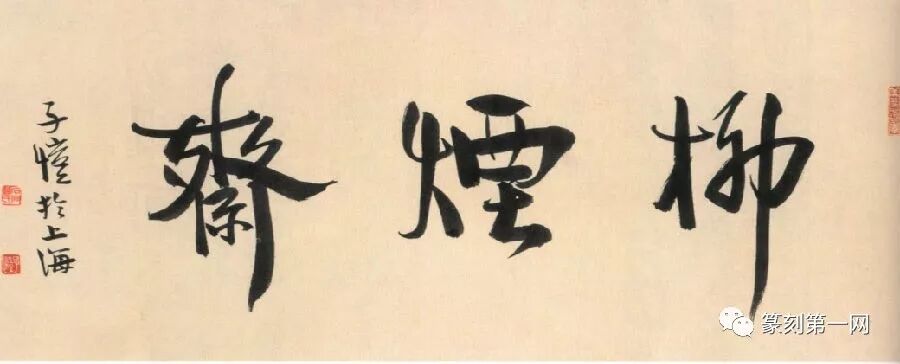 柳煙齋
子愷於上海
篆刻第一网